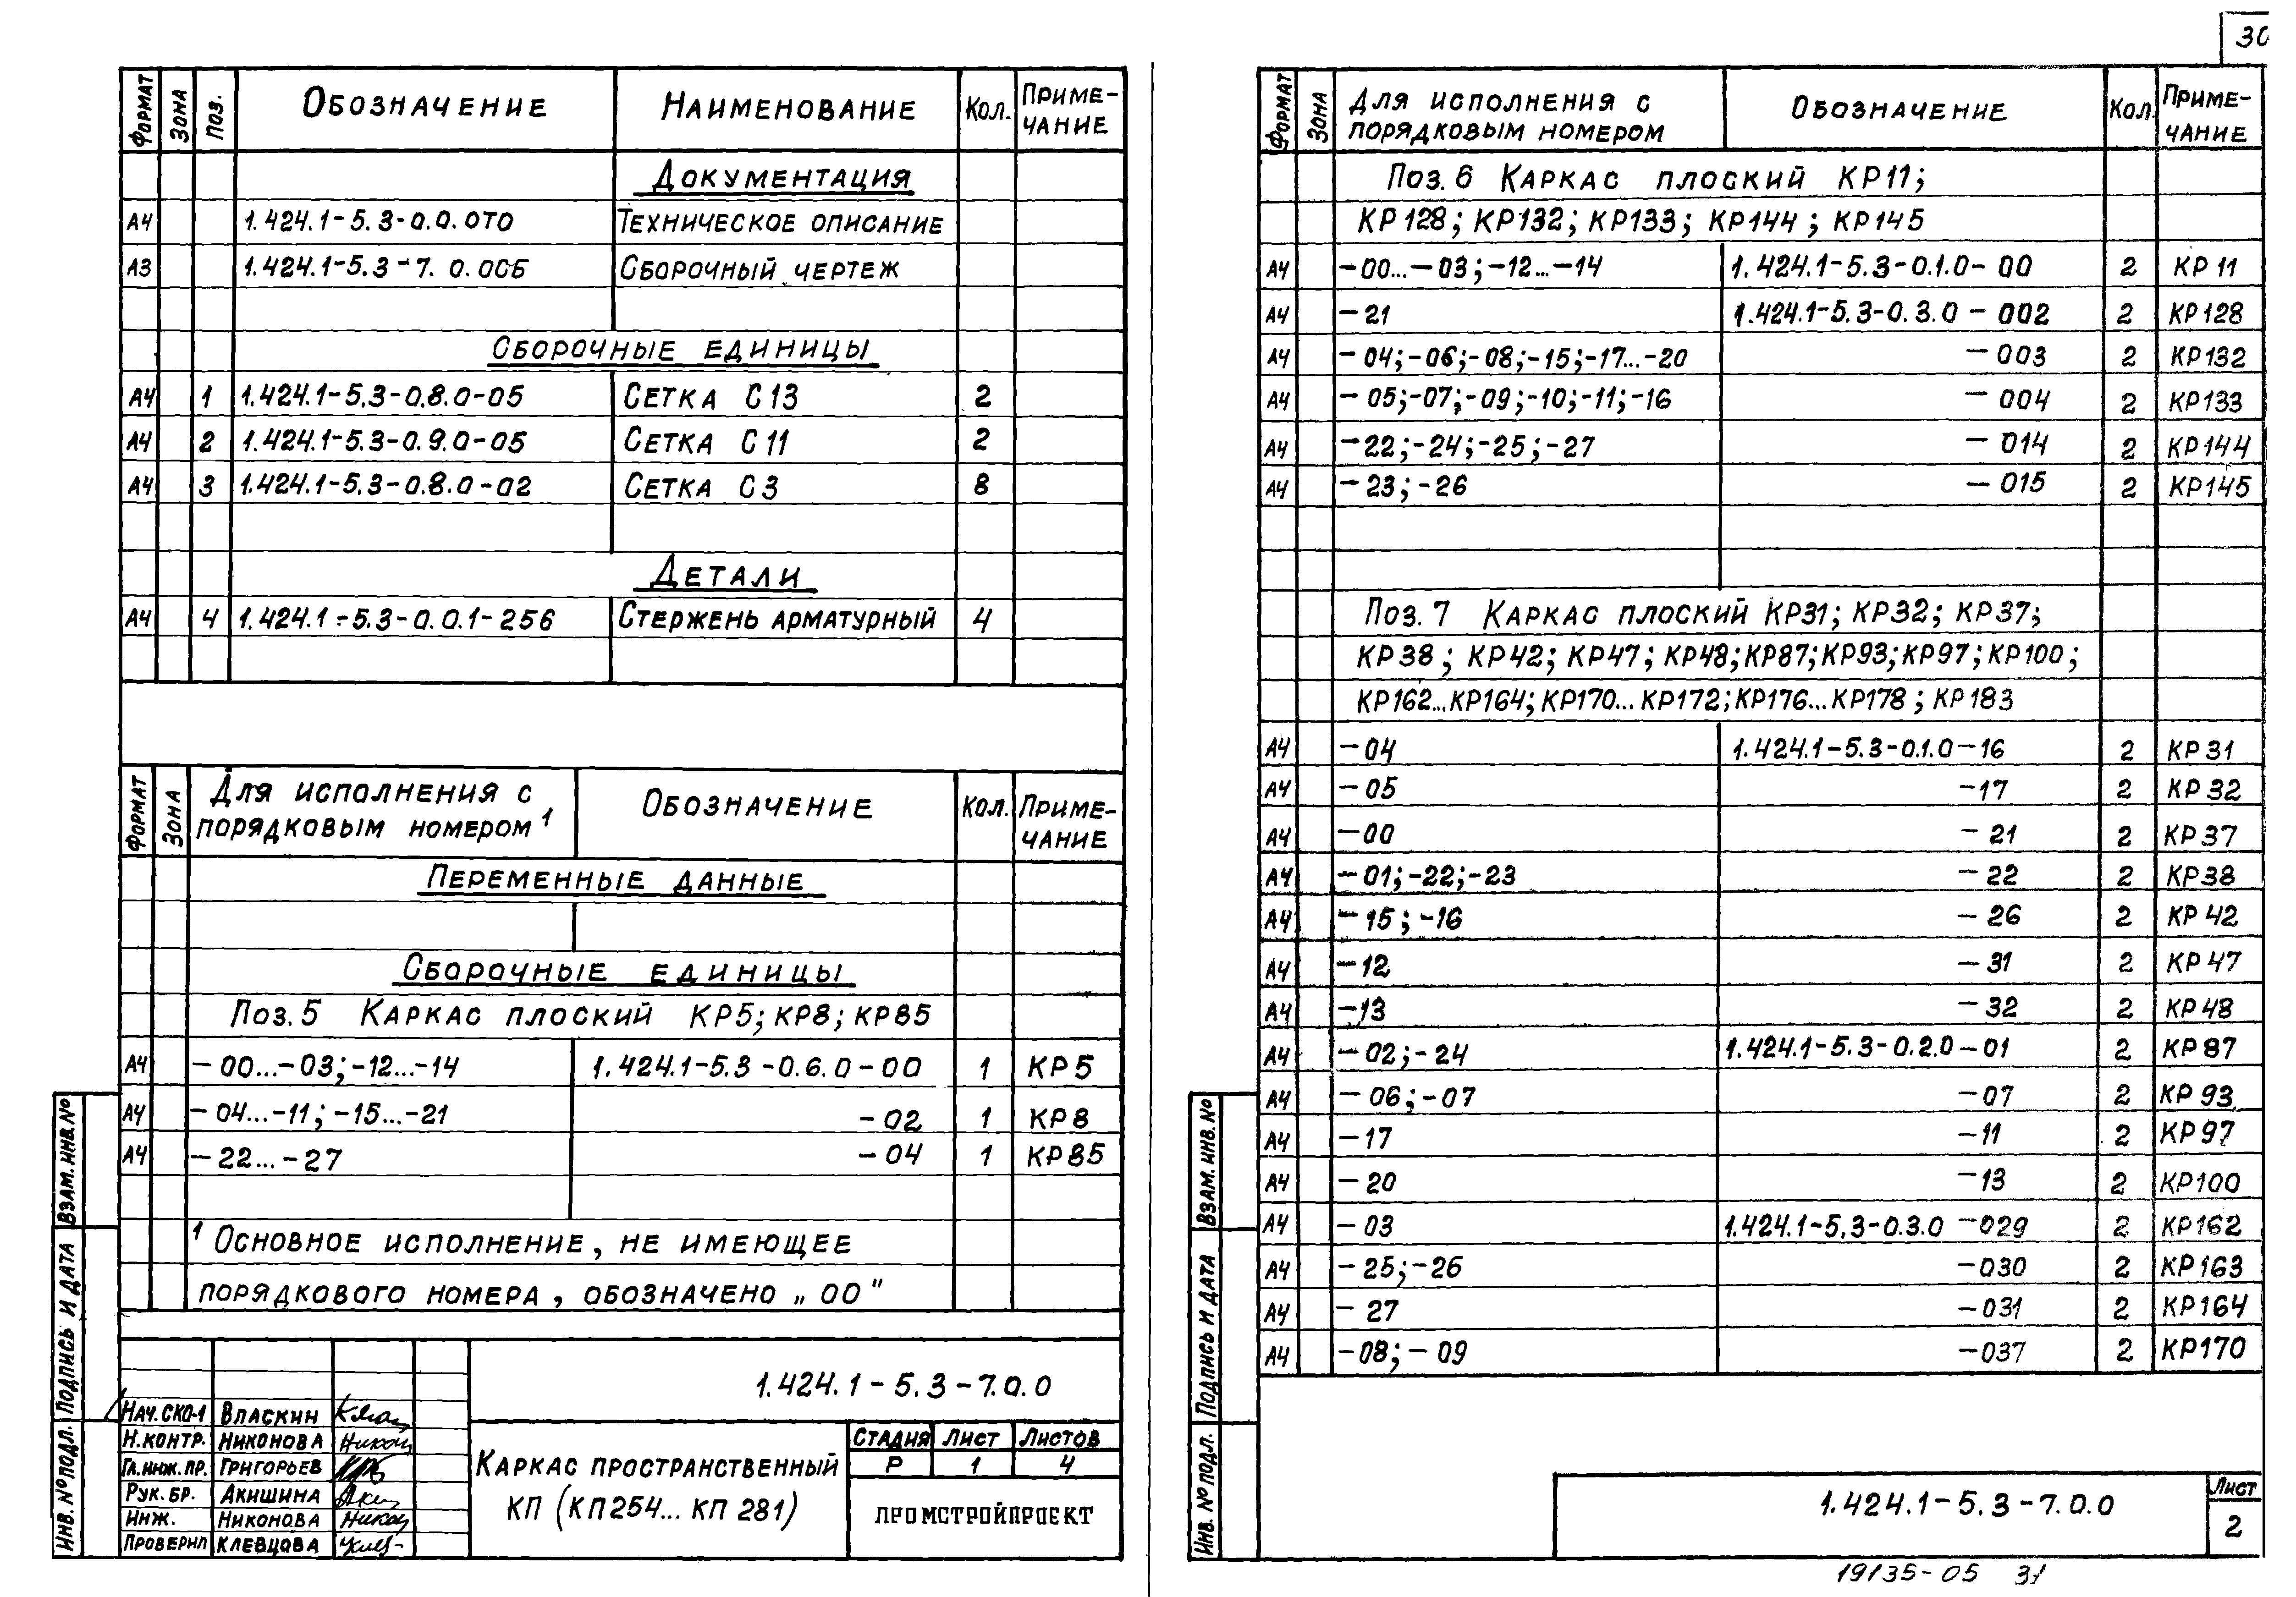 30
ФОРМАТ ЗОНА ПОЗ. ОБОЗНАЧЕНИЕ НАИМЕНОВАНИЕ КОЛ. ПРИМЕ-
ЧАНИЕ
ДОКУМЕНТАЦИЯ
А4 1.424.1-5.3-0.0.0ТО ТЕХНИЧЕСКОЕ ОПИСАНИЕ
А3 1.424.1-5.3-7.0.0СБ СБОРОЧНЫЙ ЧЕРТЕЖ
СБОРОЧНЫЕ ЕДИНИЦЫ
А4 1 1.424.1-5.3-0.8.0-05 СЕТКА С13 2
А4 2 1.424.1-5.3-0.9.0-05 СЕТКА С11 2
А4 3 1.424.1-5.3-0.8.0-02 СЕТКА С3 8
ДЕТАЛИ
А4 4 1.424.1-5.3-0.0.1-256 СТЕРЖЕНЬ АРМАТУРНЫЙ 4
ФОРМАТ ЗОНА ДЛЯ ИСПОЛНЕНИЯ С ОБОЗНАЧЕНИЕ КОЛ. ПРИМЕ-
ПОРЯДКОВЫМ НОМЕРОМ¹ ЧАНИЕ
ПЕРЕМЕННЫЕ ДАННЫЕ
СБОРОЧНЫЕ ЕДИНИЦЫ
ПОЗ. 5 КАРКАС ПЛОСКИЙ КР5; КР8; КР85
А4 -00...-03;-12...-14 1.424.1-5.3-0.6.0-00 1 КР5
А4 -04...-11;-15...-21 -02 1 КР8
А4 -22...-27 -04 1 КР85
¹ ОСНОВНОЕ ИСПОЛНЕНИЕ, НЕ ИМЕЮЩЕЕ
ПОРЯДКОВОГО НОМЕРА, ОБОЗНАЧЕНО „00"
ИНВ. № ПОДЛ. ПОДПИСЬ И ДАТА ВЗАМ. ИНВ. №
1.424.1-5.3-7.0.0
НАЧ. СКО-1 ВЛАСКИН
Н.КОНТР. НИКОНОВА
ГЛ. ИНЖ. ПР. ГРИГОРЬЕВ
РУК. БР. АКИШИНА
ИНЖ. НИКОНОВА
ПРОВЕРИЛ КЛЕВЦОВА
КАРКАС ПРОСТРАНСТВЕННЫЙ
КП (КП254...КП281)
СТАДИЯ ЛИСТ ЛИСТОВ
Р 1 4
ПРОМСТРОЙПРОЕКТ
ФОРМАТ ЗОНА ДЛЯ ИСПОЛНЕНИЯ С ОБОЗНАЧЕНИЕ КОЛ. ПРИМЕ-
ПОРЯДКОВЫМ НОМЕРОМ ЧАНИЕ
ПОЗ. 6 КАРКАС ПЛОСКИЙ КР11;
КР128; КР132; КР133; КР144; КР145
А4 -00...-03;-12...-14 1.424.1-5.3-0.1.0-00 2 КР11
А4 -21 1.424.1-5.3-0.3.0-002 2 КР128
А4 -04;-06;-08;-15;-17...-20 -003 2 КР132
А4 -05;-07;-09;-10;-11;-16 -004 2 КР133
А4 -22;-24;-25;-27 -014 2 КР144
А4 -23;-26 -015 2 КР145
ПОЗ. 7 КАРКАС ПЛОСКИЙ КР31; КР32; КР37;
КР38; КР42; КР47; КР48; КР87; КР93; КР97; КР100;
КР162...КР164; КР170...КР172; КР176...КР178; КР183
А4 -04 1.424.1-5.3-0.1.0-16 2 КР31
А4 -05 -17 2 КР32
А4 -00 -21 2 КР37
А4 -01;-22;-23 -22 2 КР38
А4 -15;-16 -26 2 КР42
А4 -12 -31 2 КР47
А4 -13 -32 2 КР48
А4 -02;-24 1.424.1-5.3-0.2.0-01 2 КР87
А4 -06;-07 -07 2 КР93
А4 -17 -11 2 КР97
А4 -20 -13 2 КР100
А4 -03 1.424.1-5.3-0.3.0-029 2 КР162
А4 -25;-26 -030 2 КР163
А4 -27 -031 2 КР164
А4 -08;-09 -037 2 КР170
ИНВ. № ПОДЛ. ПОДПИСЬ И ДАТА ВЗАМ. ИНВ. №
1.424.1-5.3-7.0.0
ЛИСТ
2
19135-05 31